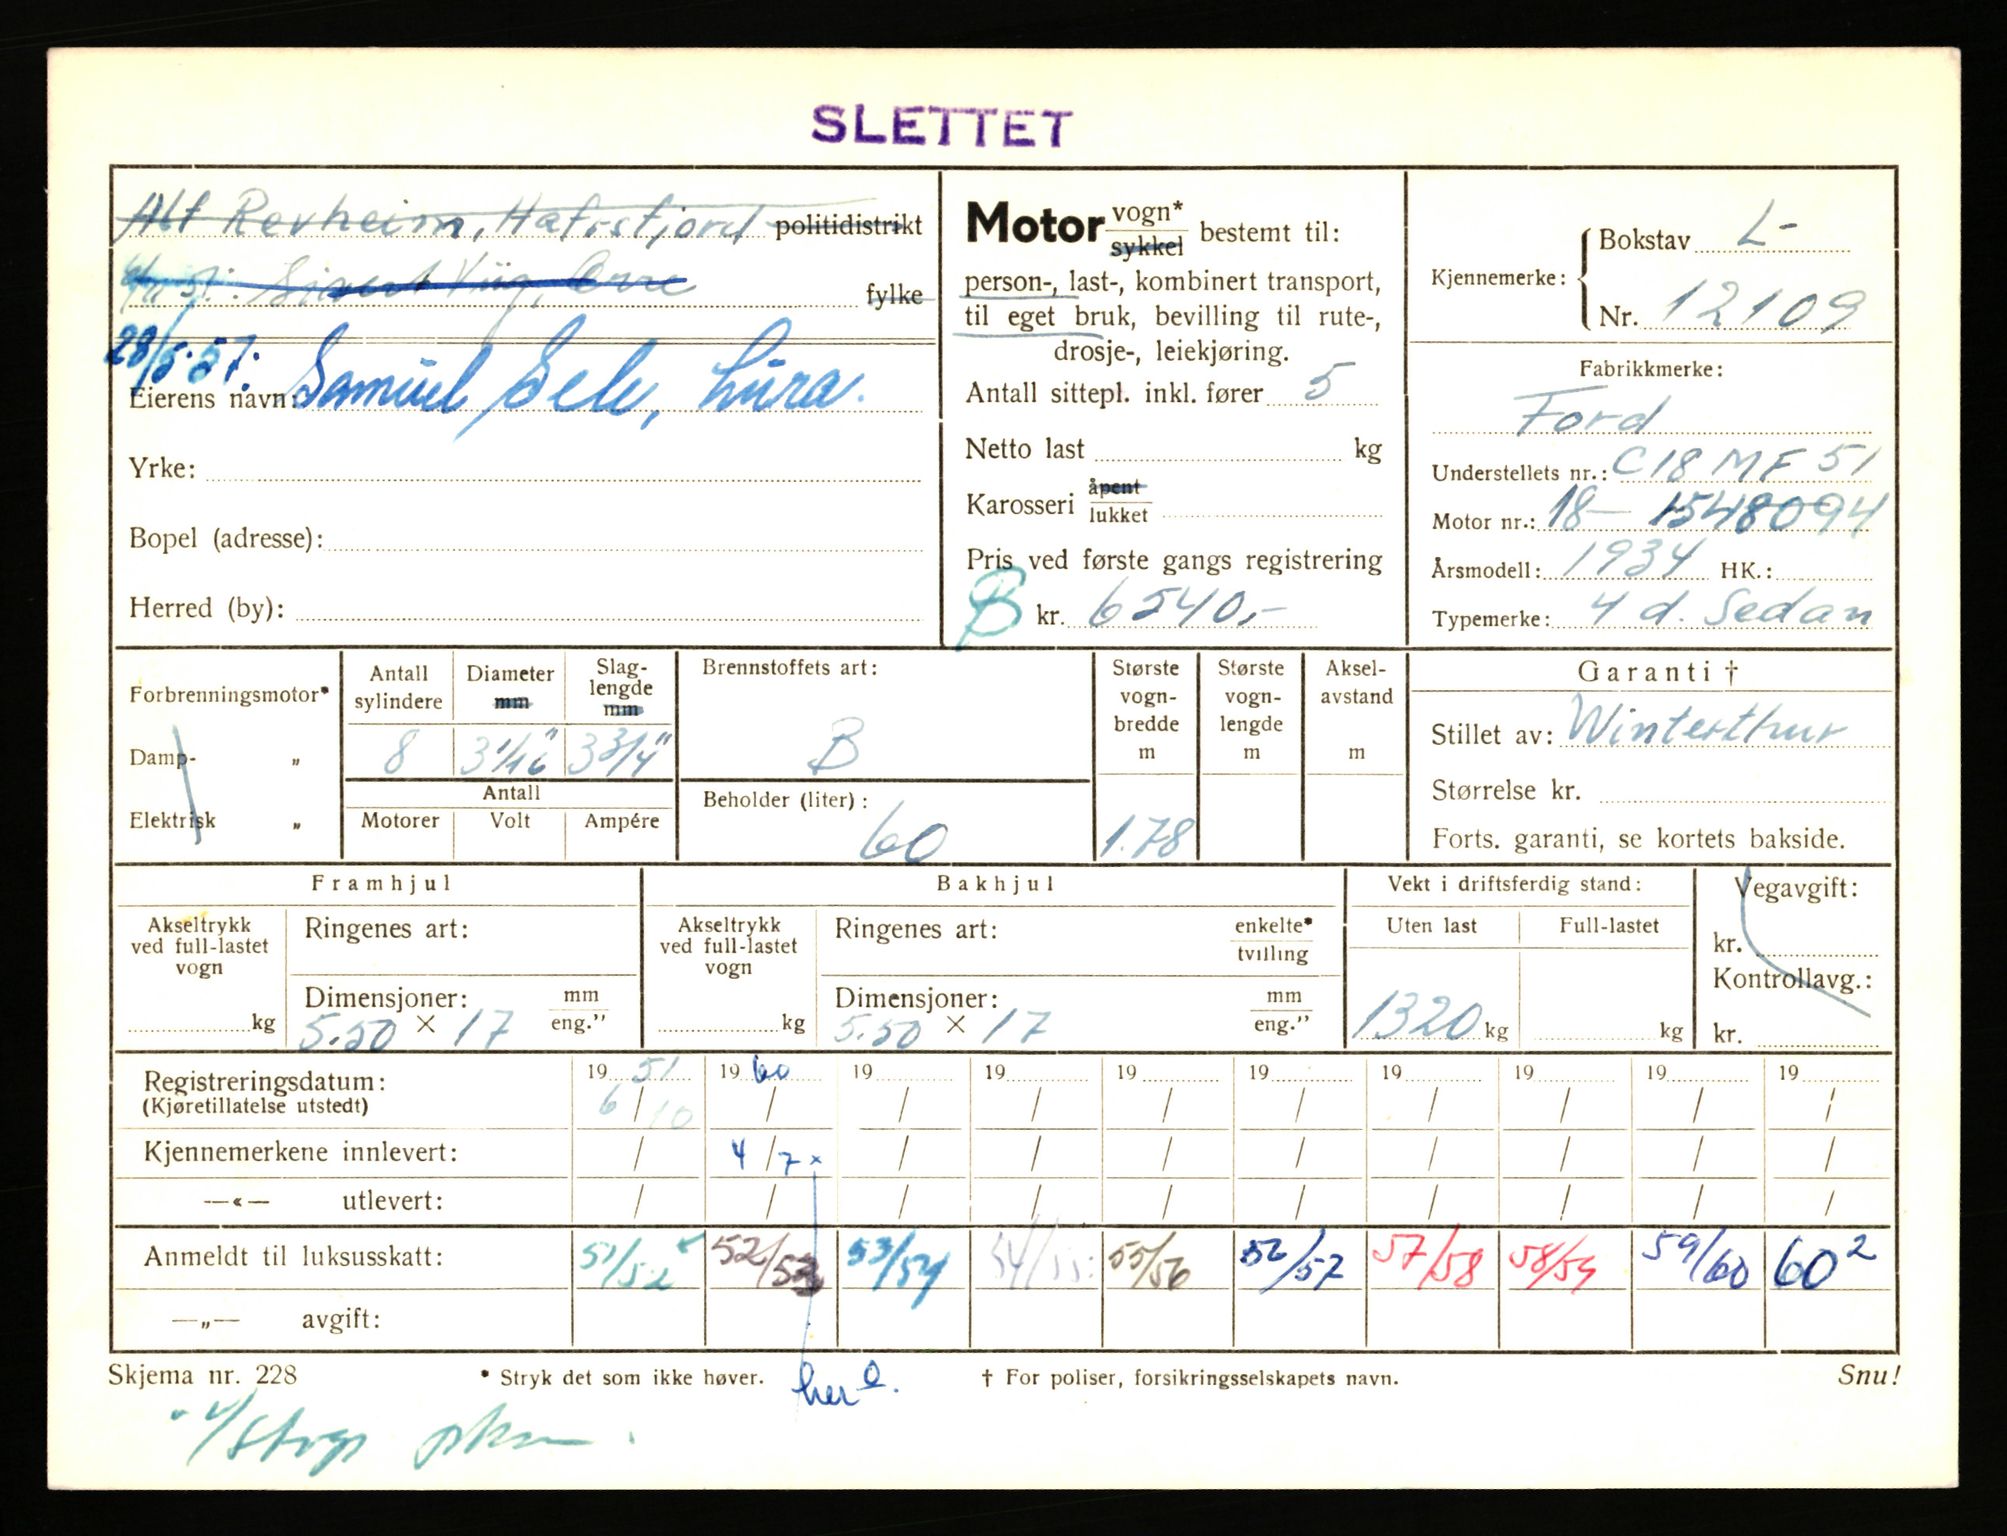 SLETTET
Alf Revheim, Hafrsfjord politidistrikt
Sivert Viig, Orre fylke
28/5-57:
Eierens navn: Samuel Sele, Lura.
Yrke:
Bopel (adresse):
Herred (by):
Motor vogn* sykkel bestemt til:
person-, last-, kombinert transport,
til eget bruk, bevilling til rute-,
drosje-, leiekjøring.
Antall sittepl. inkl. fører 5
Netto last kg
Karosseri åpent lukket
Pris ved første gangs registrering
B kr. 6540,-
Kjennemerke: Bokstav L-
Nr. 12109
Fabrikkmerke:
Ford
Understellets nr.: C18 MF 51
Motor nr.: 18- 1548094
Årsmodell: 1934 HK.:
Typemerke: 4 d. Sedan
Forbrenningsmotor*
Damp- „
Elektrisk „
Antall sylindere
Diameter mm
Slag-lengde mm
8 3 1/16" 3 3/4"
Antall
Motorer Volt Ampére
Brennstoffets art:
B
Beholder (liter):
60
Største vogn-bredde m
1.78
Største vogn-lengde m
Aksel-avstand m
Garanti †
Stillet av: Winterthur
Størrelse kr.
Forts. garanti, se kortets bakside.
Framhjul
Akseltrykk ved full-lastet vogn
kg
Ringenes art:
Dimensjoner: mm
5.50 × 17 eng."
Bakhjul
Akseltrykk ved full-lastet vogn
kg
Ringenes art: enkelte* tvilling
Dimensjoner: mm
5.50 × 17 eng."
Vekt i driftsferdig stand:
Uten last Full-lastet
1320 kg kg
Vegavgift:
kr.
Kontrollavg.:
kr.
Registreringsdatum: 19 51 19 60 19 19 19 19 19 19 19 19
(Kjøretillatelse utstedt) 6/10 / / / / / / / / /
Kjennemerkene innlevert: / 4/7 × / / / / / / / /
—«— utlevert: / / / / / / / / / /
Anmeldt til luksusskatt: 51/52 52/53 53/54 54/55 55/56 56/57 57/58 58/59 59/60 60²
—„— avgift:
Skjema nr. 228 * Stryk det som ikke høver. † For poliser, forsikringsselskapets navn. Snu!